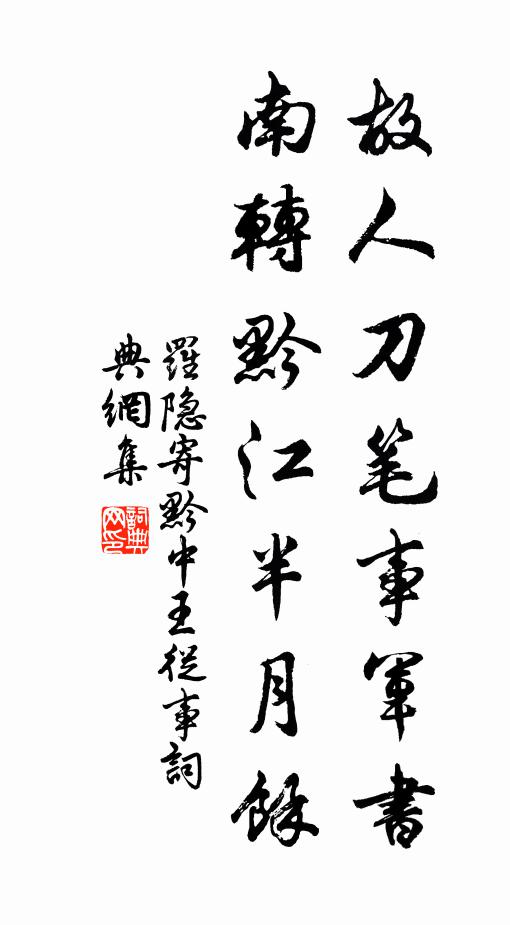 故人刀笔事軍書
南轉黔江半月餘
羅隐寄黔中王從事詞
典網集
詞典网印